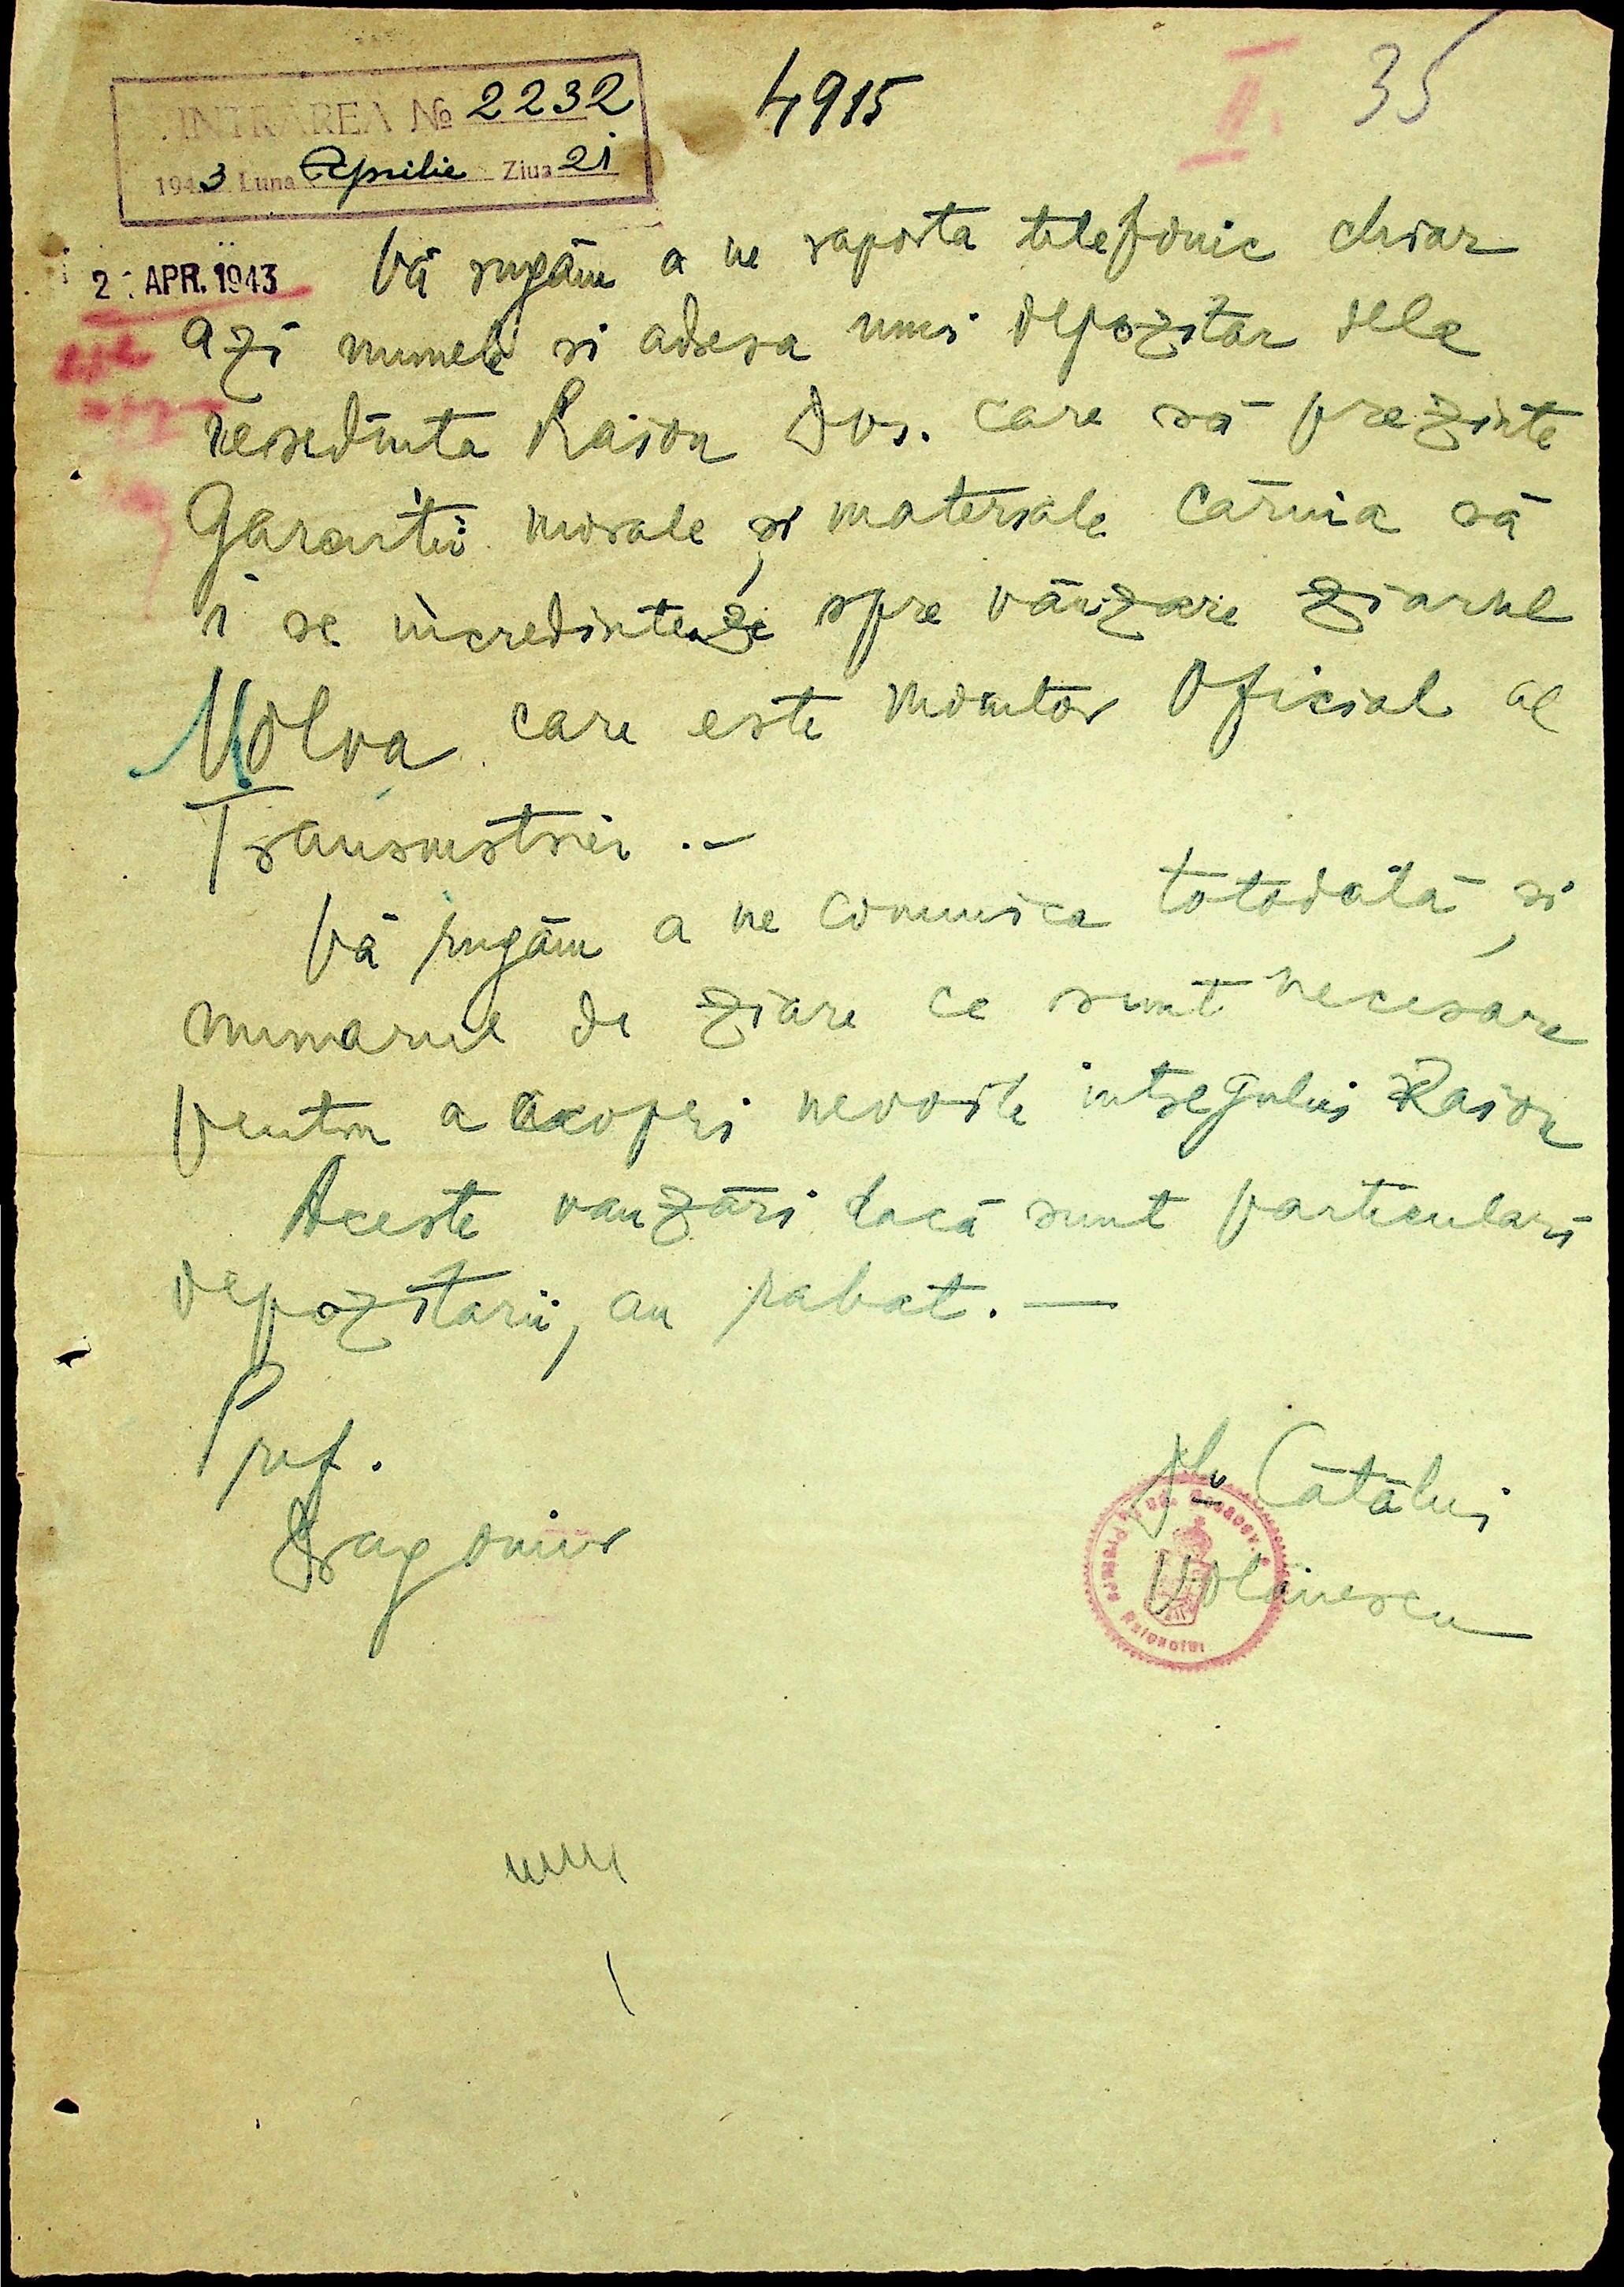 INTRAREA № 2232
1943 Luna Aprilie Ziua 21
4915
II.
35
2 APR. 1943
Vă rugăm a ne raporta telefonic chiar
azi numele si adresa unui depozitar dela
resedinta Raion Dvs. care să prezinte
Garantii morale și materiale căruia să
i se incredinteze spre vânzare ziarul
Molva care este monitor Oficial al
Transnistriei .-
Vă rugăm a ne comunica totodată și
numarul de ziare ce sunt necesare
pentru a acoperi nevoile intregului Raion
Aceste vanzări dacă sunt particulari
depozitarii, au rabat. —
Pref.
Dragomir
Cătălui
Volănescu